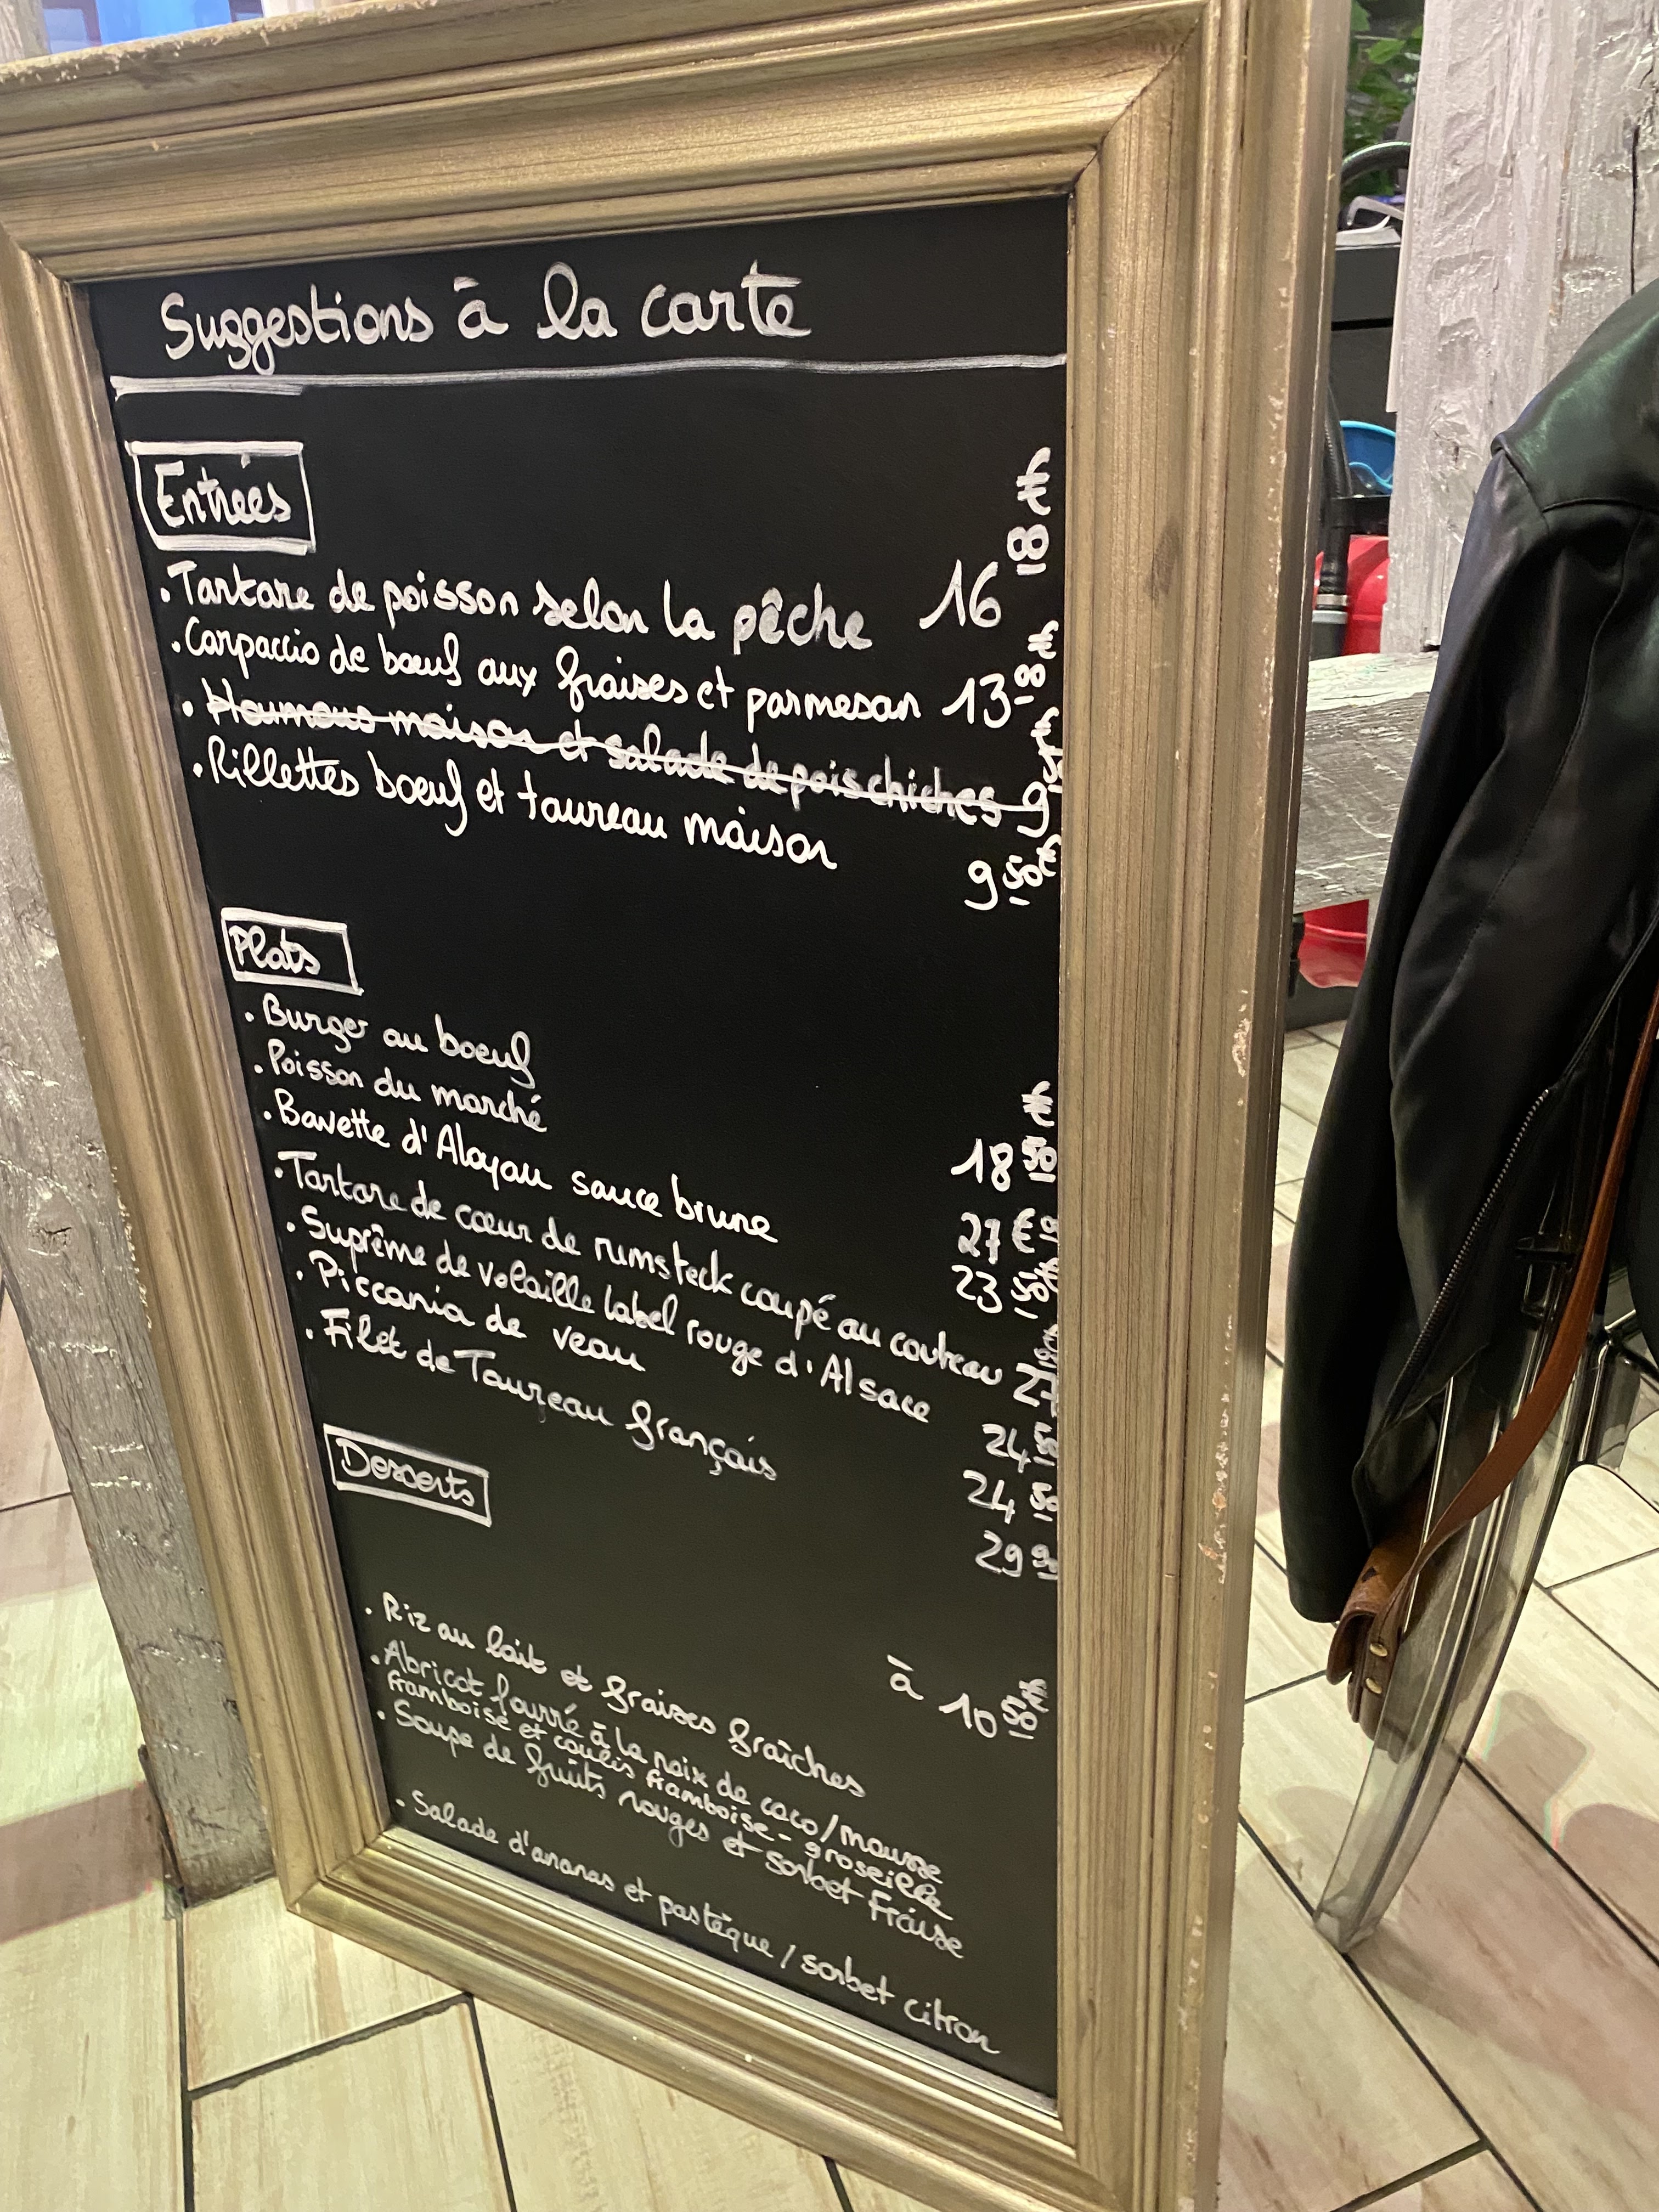 Suggestions à la carte
Entrées
. Tartare de poisson selon la pêche 16 00 €
. Carpaccio de bœuf aux fraises et parmesan 13 00 €
. Houmous maison et salade de pois chiches 9
. Rillettes boeuf et taureau maison 9 50 €
Plats
. Burger au boeuf 18 50 €
. Poisson du marché 27 €
. Bavette d'Aloyau sauce brune 23 50
. Tartare de cœur de rumsteck coupé au couteau 27
. Suprême de volaille label rouge d'Alsace 24 50
. Piccania de veau 24 50
. Filet de Taureau français 29 90
Desserts
à 10 50 €
. Riz au lait et fraises fraîches
. Abricot fourré à la noix de coco / mousse
framboise et coulis framboise - groseille
. Soupe de fruits rouges et sorbet Fraise
. Salade d'ananas et pastèque / sorbet citron